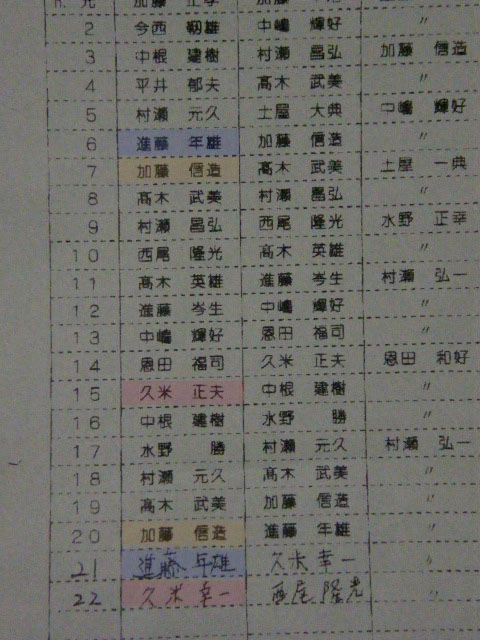 2 今西 靭雄 中嶋 輝好 〃
3 中根 建樹 村瀬 昌弘 加藤 信造
4 平井 郁夫 髙木 武美 〃
5 村瀬 元久 土屋 大典 中嶋 輝好
6 進藤 年雄 加藤 信造 〃
7 加藤 信造 髙木 武美 土屋 一典
8 髙木 武美 村瀬 昌弘 〃
9 村瀬 昌弘 西尾 隆光 水野 正幸
10 西尾 隆光 髙木 英雄 〃
11 髙木 英雄 進藤 岑生 村瀬 弘一
12 進藤 岑生 中嶋 輝好 〃
13 中嶋 輝好 恩田 福司 〃
14 恩田 福司 久米 正夫 恩田 和好
15 久米 正夫 中根 建樹 〃
16 中根 建樹 水野 勝 〃
17 水野 勝 村瀬 元久 村瀬 弘一
18 村瀬 元久 髙木 武美 〃
19 髙木 武美 加藤 信造 〃
20 加藤 信造 進藤 年雄 〃
21 進藤 年雄 久米 幸一 〃
22 久米 幸一 西尾 隆光 〃